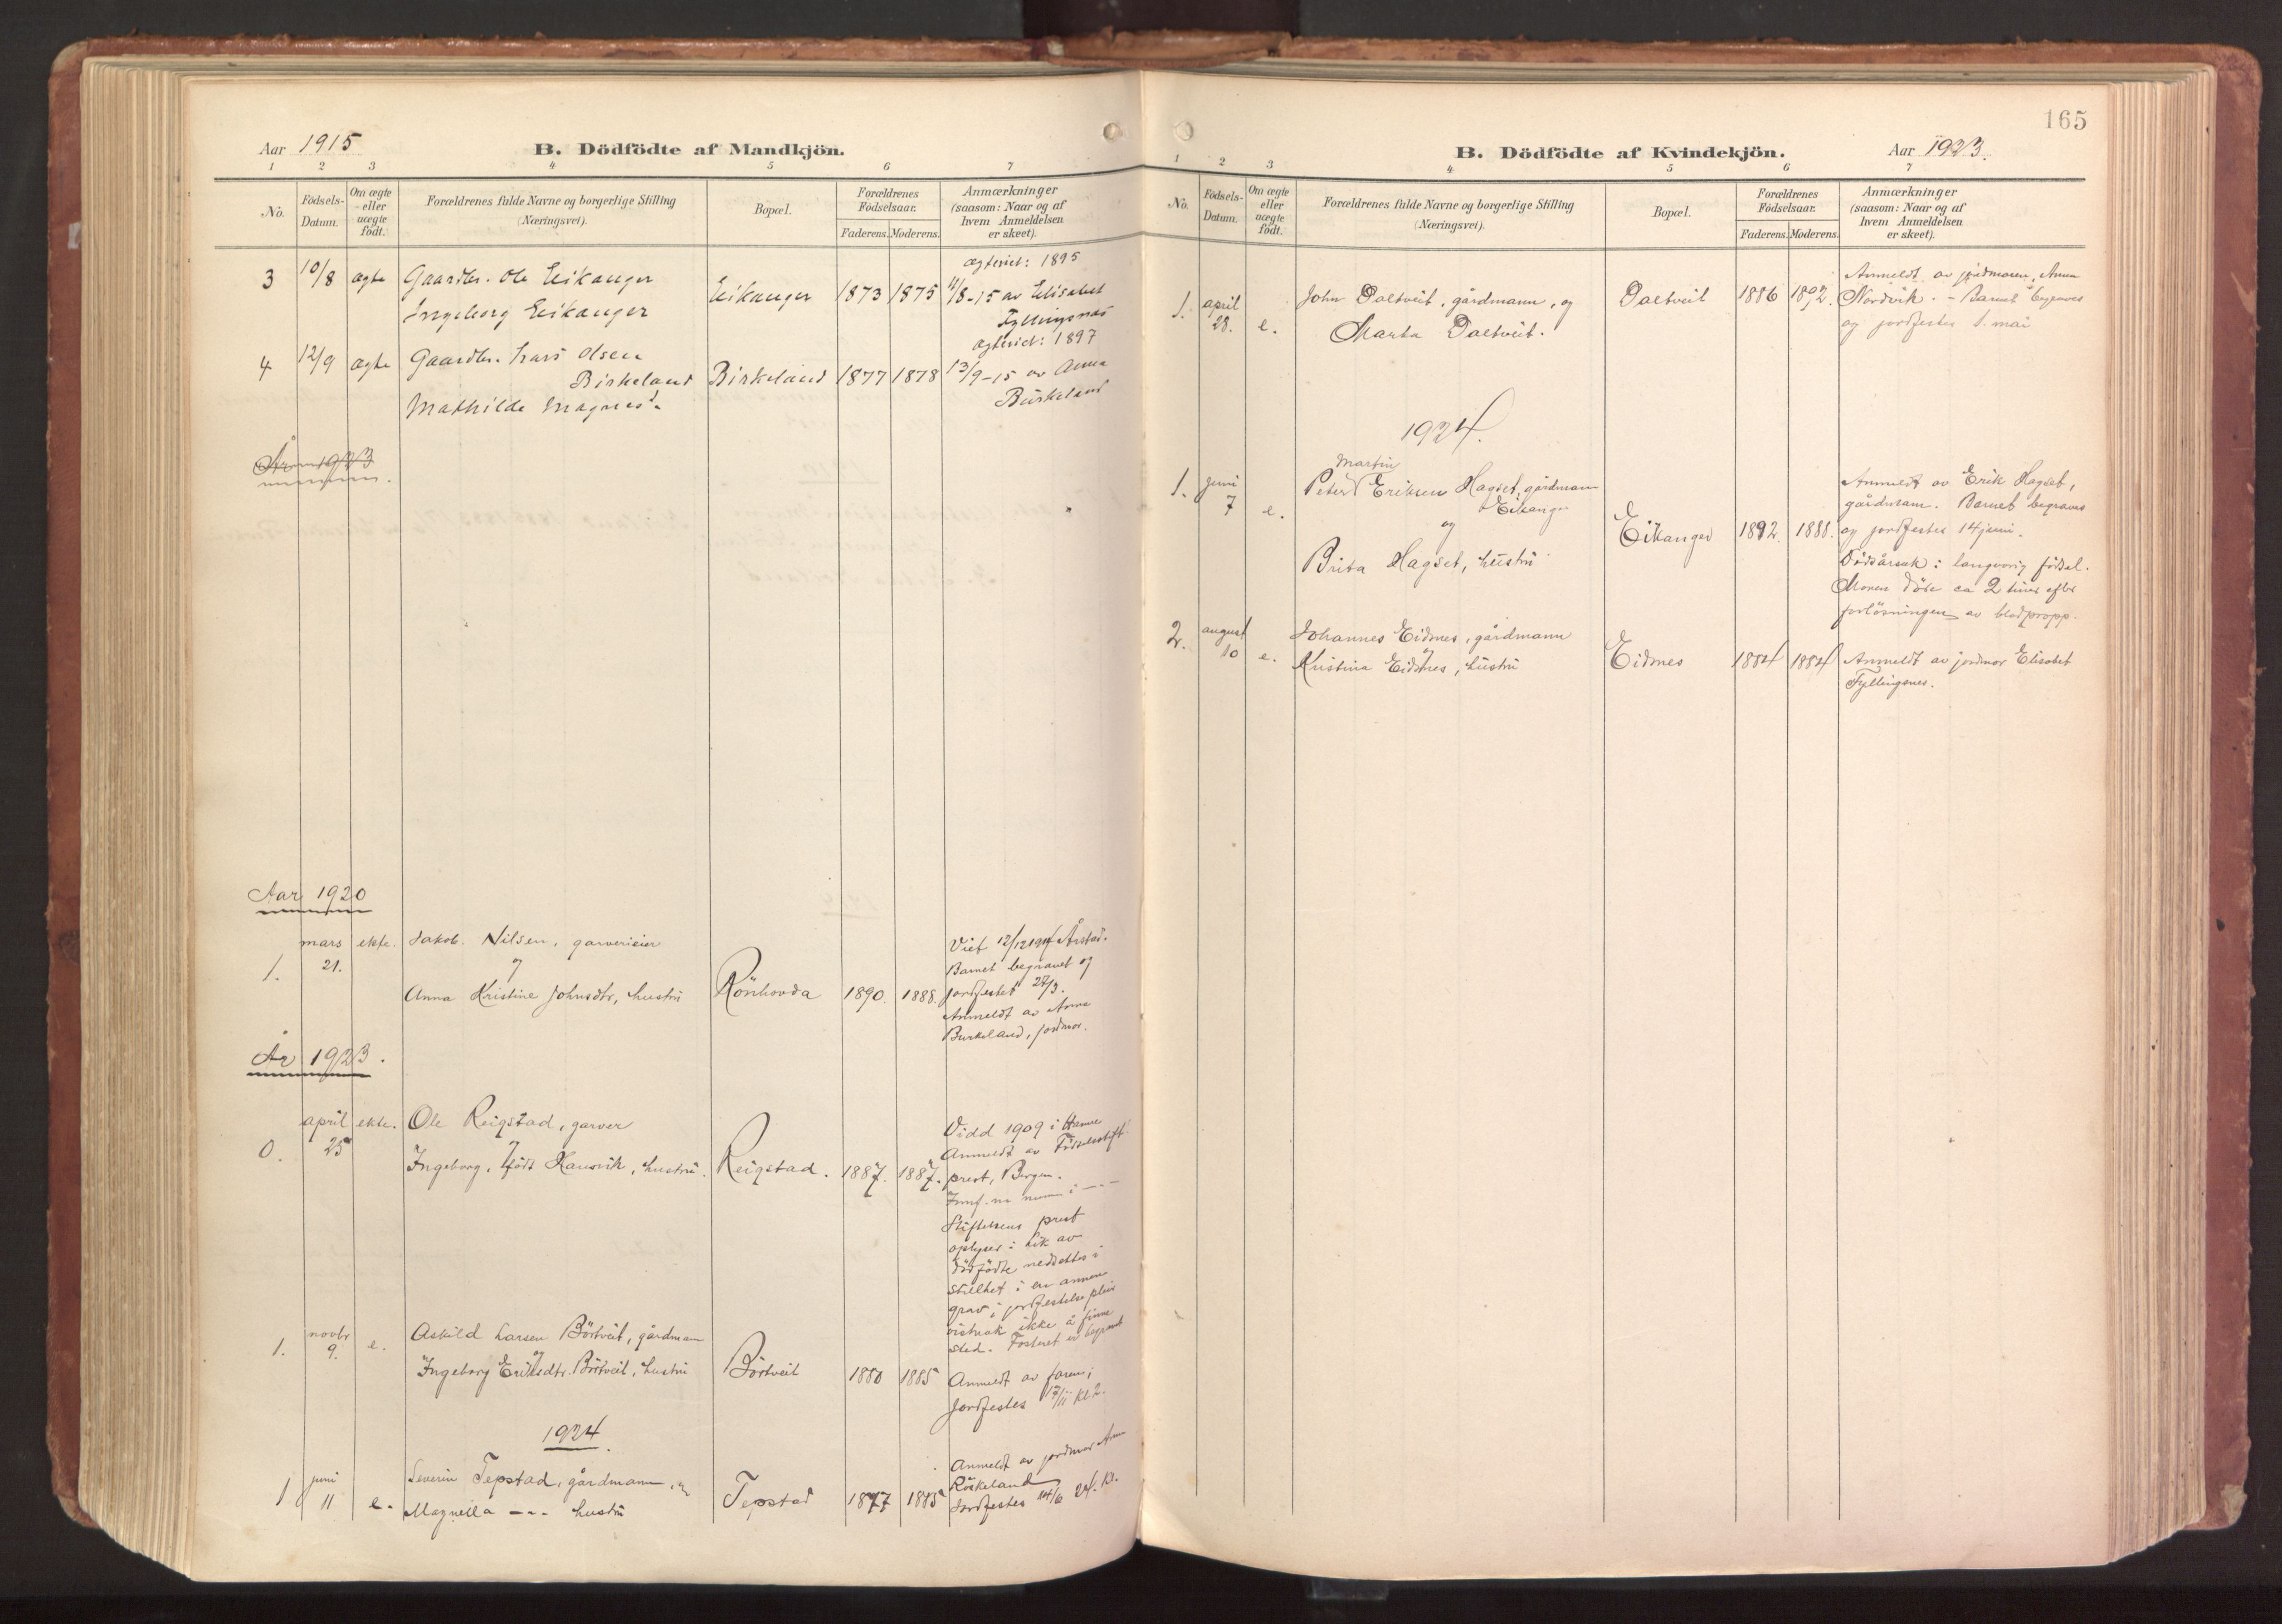 Aar 1915
B. Dödfödte af Mandkjön.
1 2 3 4 5 6 7
No.
Födsels-Datum.
Om ægte eller uægte födt.
Forældrenes fulde Navne og borgerlige Stilling
(Næringsvei).
Bopæl.
Forældrenes Fødselsaar.
Faderens. Moderens.
Anmærkninger
(saasom: Naar og af
hvem Anmeldelsen
er skeet).
ægteviet: 1895
3 10/8 ægte Gaardbr. Ole Eikanger Eikanger 1873 1875 11/8-15 av Elisabet
Ingeborg Eikanger Fyllingsnes
ægteviet: 1897
4 12/9 ægte Gaardbr. Lars Olsen
Birkeland Birkeland 1877 1878 13/9-15 av Anna
Mathilde Magnesd. Birkeland
År 1923
Aar 1920
mars ekte. Jakob Nilsen, garverieier Viet 12/12 Årstad.
1. 21. og Barnet begravet og
Anna Kristine Johnsdtr, hustru Rönhovda 1890. 1888. jordfestet 27/3.
Anmeldt av Anna
Birkeland, jordmor.
År 1923.
april ekte. Ole Reigstad, garver Vidd 1909 i Hamre
0. 25 og Anmeldt av Födselsstift.
Ingeborg, födt Hausvik, hustru. Reigstad. 1887. 1887. prest, Bergen.
Stiftelsens prest
oplyser: Lik av
dödfödte nedsettes i
stillhet i en annen
grav; jordfestelse pleier
ikke å finne
sted. Fosteret er begravet
novbr
1. 9. e. Askild Larsen Börtveit, gårdmann
og
Ingeborg Eriksdtr. Börtveit, hustru Börtveit 1880 1885 Anmeldt av faren;
Jordfestes 17/11 kl 2.
1924
juni Severin Tepstad, gårdmann, og Anmeldt av jordmor Anna
1 11 e. Magnella --- hustru Tepstad 1877 1885 Röskeland
Jordfestes 14/6 kl.
165
B. Dödfödte af Kvindekjön.
Aar 1923.
1 2 3 4 5 6 7
No.
Födsels-Datum.
Om ægte eller uægte födt.
Forældrenes fulde Navne og borgerlige Stilling
(Næringsvei).
Bopæl.
Forældrenes Födselsaar.
Faderens. Moderens.
Anmærkninger
(saasom: Naar og af
hvem Anmeldelsen
er skeet).
Anmeldt av jordmoren, Anna
1. april John Daltveit, gårdmann, og Daltveit 1886 1892. Nordvik. - Barnet begraves
28. e. Marta Daltveit. og jordfestes 1. mai
1924.
Martin
1. juni Peter Eriksen Hagset, gårdmann Anmeldt av Erik Hagset,
7 e. Eikanger gårdmann. Barnet begraves
og Eikanger 1892. 1888. og jordfestes 14 juni.
Brita Hagset, hustru Dödsårsak: langvarig födsel.
Moren döde ca 2 timer efter
forlösningen av blodpropp.
2. august Johannes Eidsnes, gårdmann
10 e. og
Kristina Eidsnes, hustru Eidsnes 1884 1884 Anmeldt av jordmor Elisabet
Fyllingsnes.